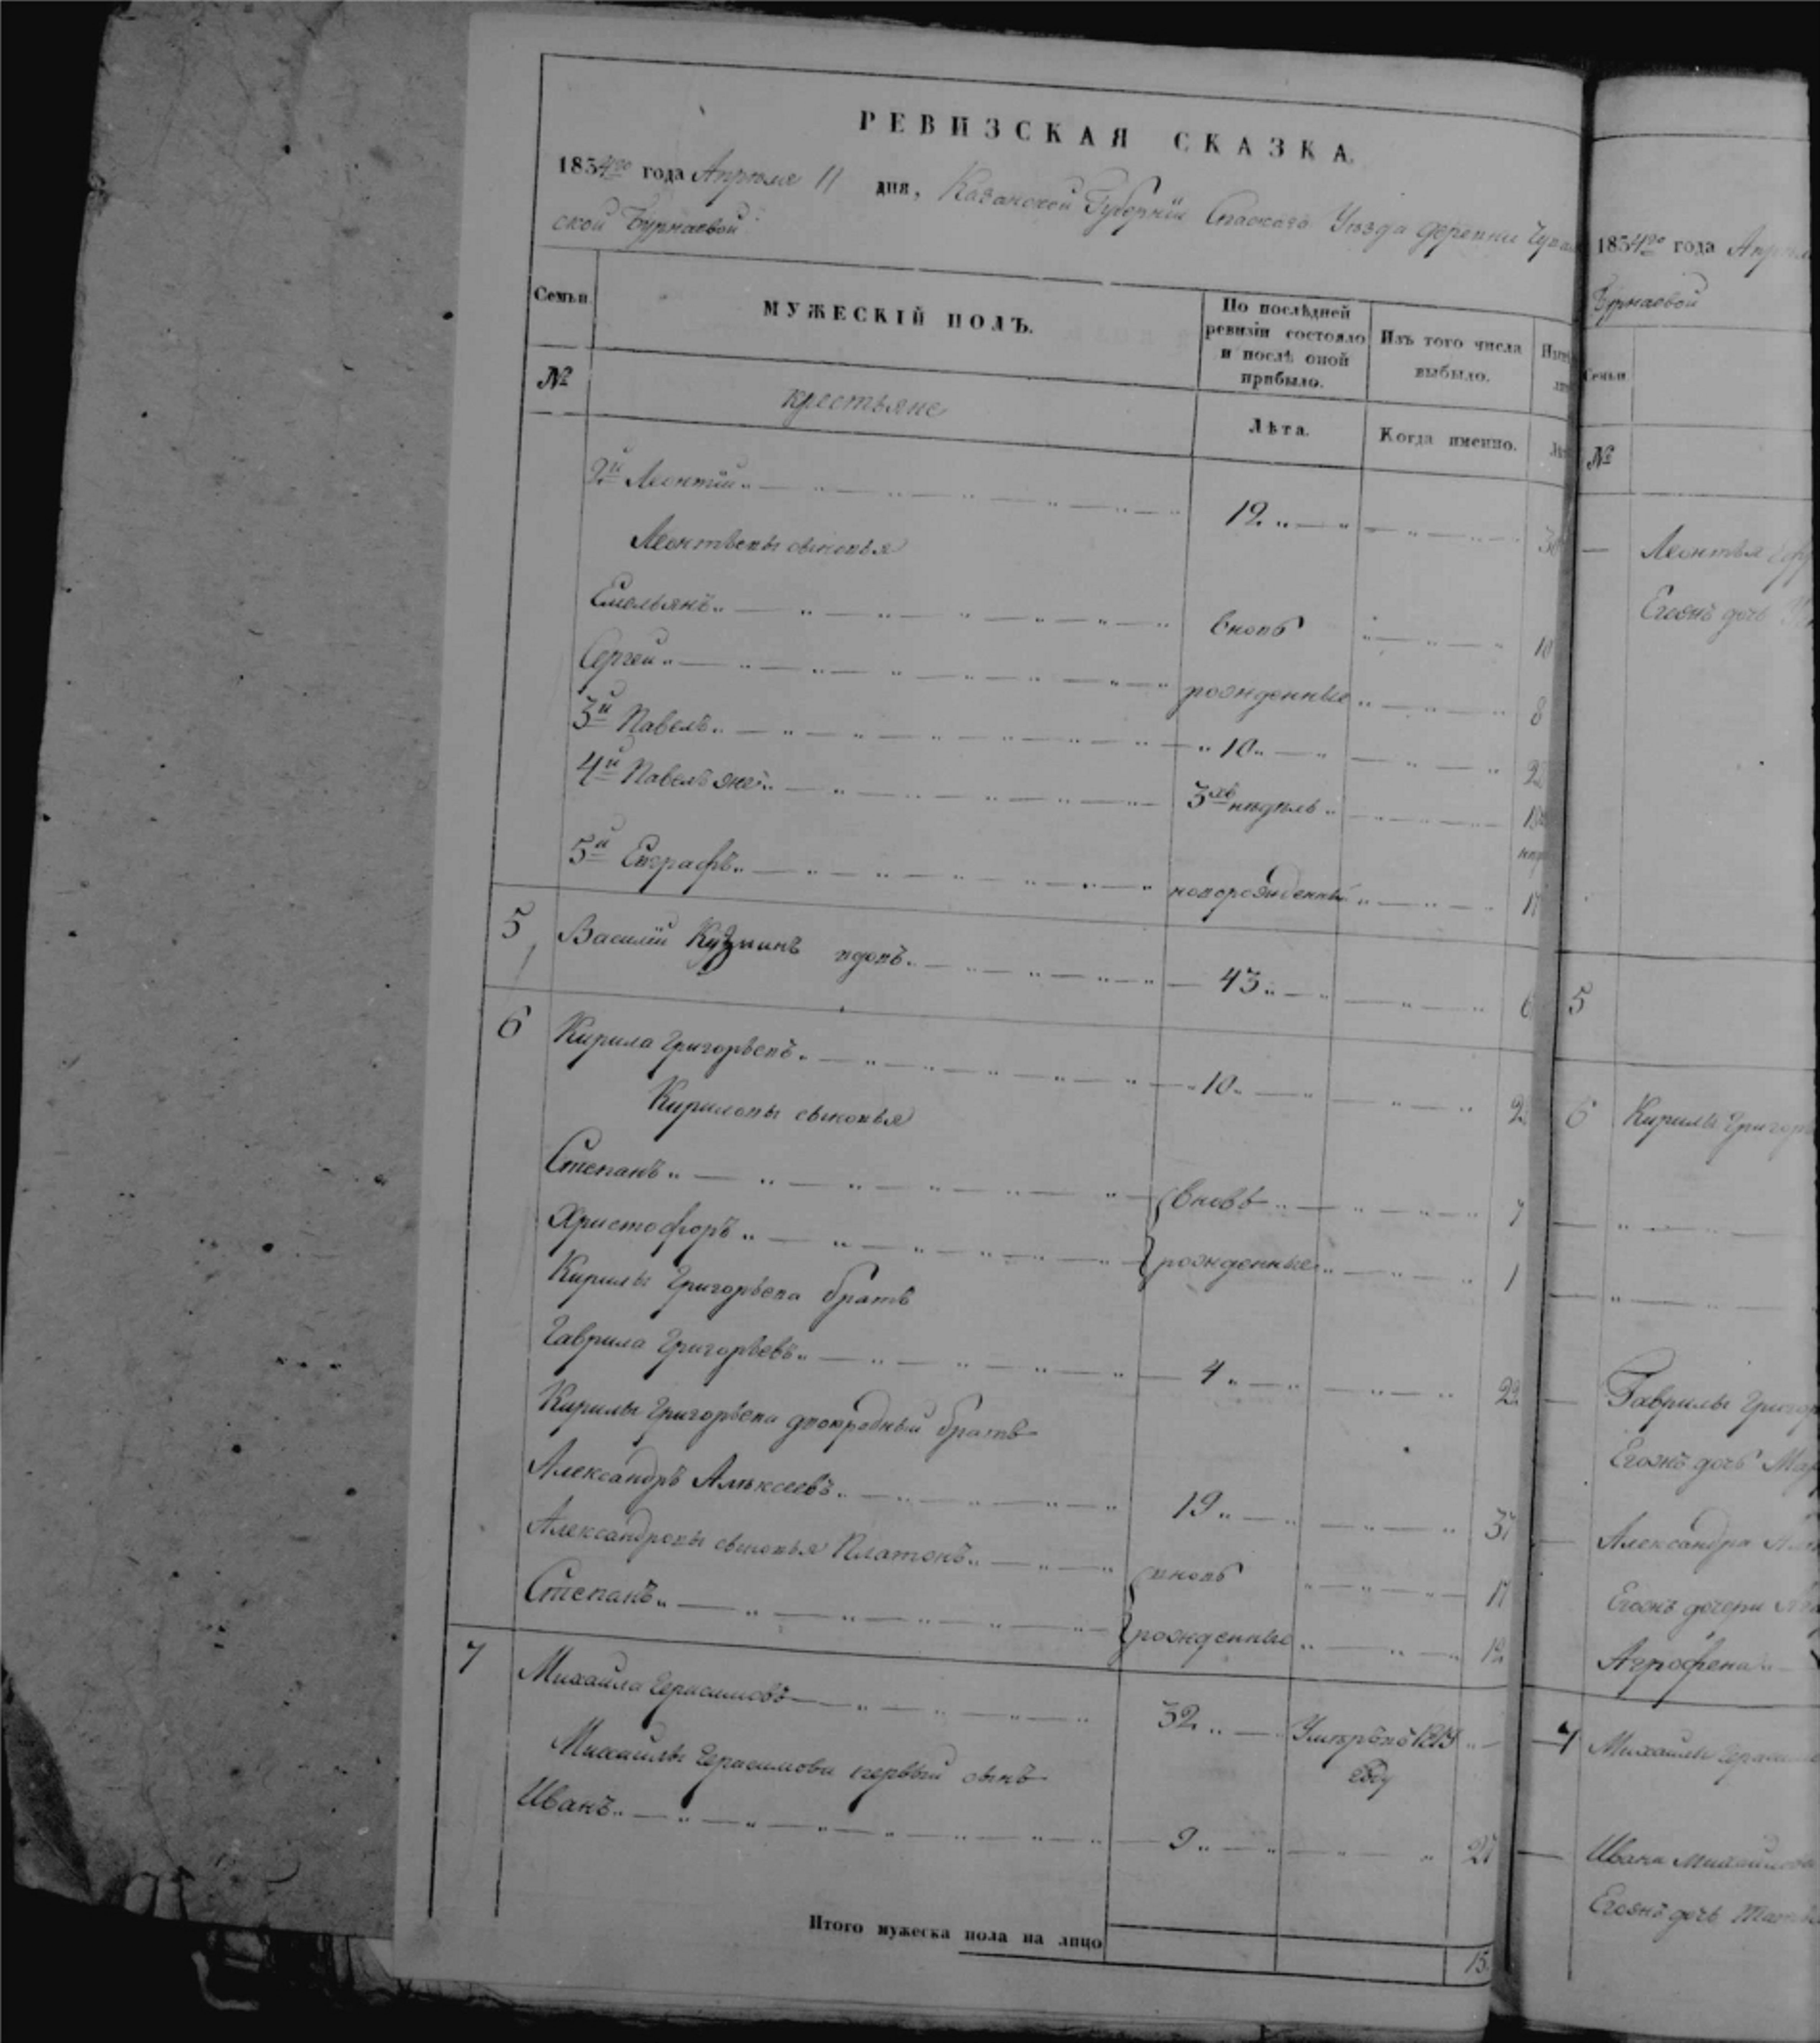 РЕВИЗСКАЯ СКАЗКА.
1854го года Апреля 11 дня, Казанской Губернiи Спаского Уезда деревни
ской Бурнаевой
Семьи. МУЖЕСКІЙ ПОЛЪ. По послѣдней ревизіи состояло и послѣ оной прибыло. Изъ того числа выбыло.
№ крестьяне Лѣта. Когда именно.
2й Леонтiй 12
Леонтьевы сыновья
Емельянъ вновь 10
Сергей рожденные 8
3й Павелъ 10
4й Павелъ же 3хъ недѣль
5й Евграфъ новорожденный
5 Василiй Кузминъ вдовъ 43
6 Кирила Григорьевъ 10
Кириловы сыновья
Степанъ вновь 7
Христофоръ рожденные 1
Кирилы Григорьева братъ
Гаврила Григорьевъ 4 22
Кирилы Григорьева двоюродный братъ
Александръ Алѣксеевъ 19 37
Александровы сыновья Платонъ вновь 17
Степанъ рожденные 12
7 Михаила Герасимовъ 32 Умеръ въ
году
Михаилы Герасимова первый сынъ
Иванъ 9 27
Итого мужеска пола на лицо 15
1854го года
Бурнаевой
Семьи.
№
Леонтья
Егожъ дочь
5
6 Кирилы
Гаврилы
Егожъ дочь
Александра
Егожъ дочери
Агрофена
7 Михаилы
Ивана Михайлова
Егожъ дочь